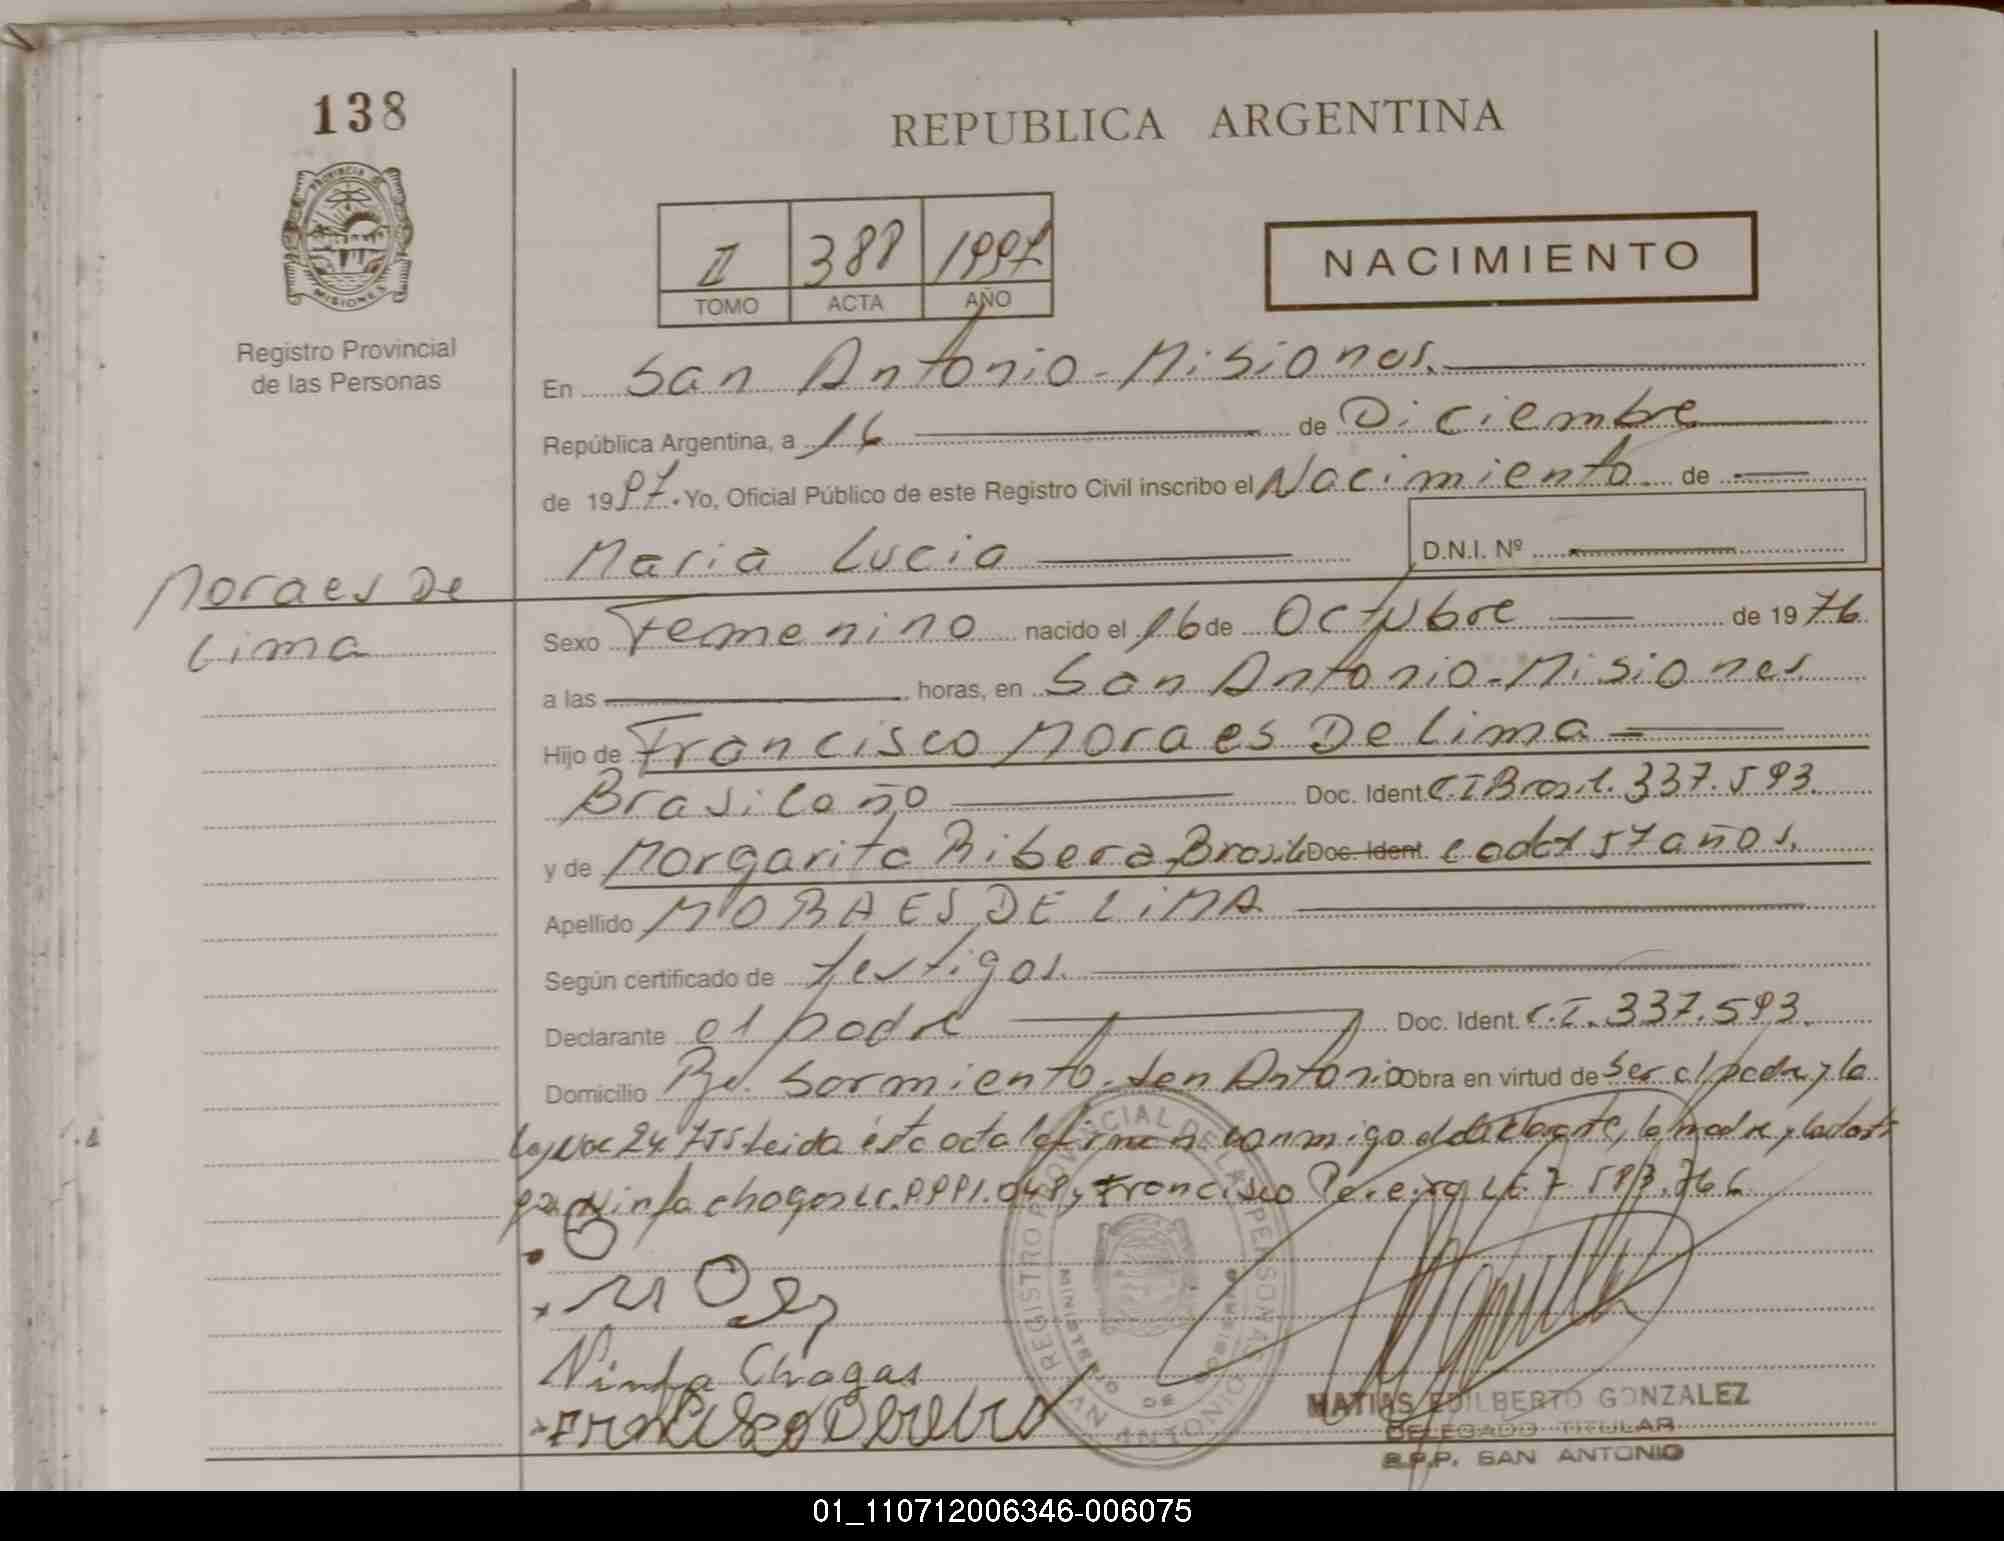 138
REPUBLICA ARGENTINA
PROVINCIA DE
MISIONES
Registro Provincial
de las Personas
II 388 1997
TOMO ACTA AÑO
NACIMIENTO
En San Antonio - Misiones.
República Argentina, a 16 de Diciembre
de 1997. Yo, Oficial Público de este Registro Civil inscribo el Nacimiento de
Maria Lucia D.N.I. Nº
Moraes De
Lima
Sexo Femenino nacido el 16 de Octubre de 1976
a las horas, en San Antonio - Misiones
Hijo de Francisco Moraes De Lima
Brasileño Doc. Ident. C I Brasil. 337.593.
y de Margarita Ribera, Brasile Doc. Ident. edad 57 años.
Apellido MORAES DE LIMA
Según certificado de testigos.
Declarante el padre Doc. Ident. C.I. 337.593.
Domicilio Bº. Sarmiento. San Antonio Obra en virtud de ser el padre y la
Ley Nac 24.755 Leida ésta acta la firman conmigo el declarante, la madre, y los testi
gos Ninfa Chagas LC. Francisco Pereira
Ninfa Chagas
Francisco Pereira
REGISTRO PROVINCIAL DE LAS PERSONAS
MINISTERIO DE GOBIERNO
SAN ANTONIO
MATIAS EDILBERTO GONZALEZ
DELEGADO TITULAR
R.P.P. SAN ANTONIO
01_110712006346-006075